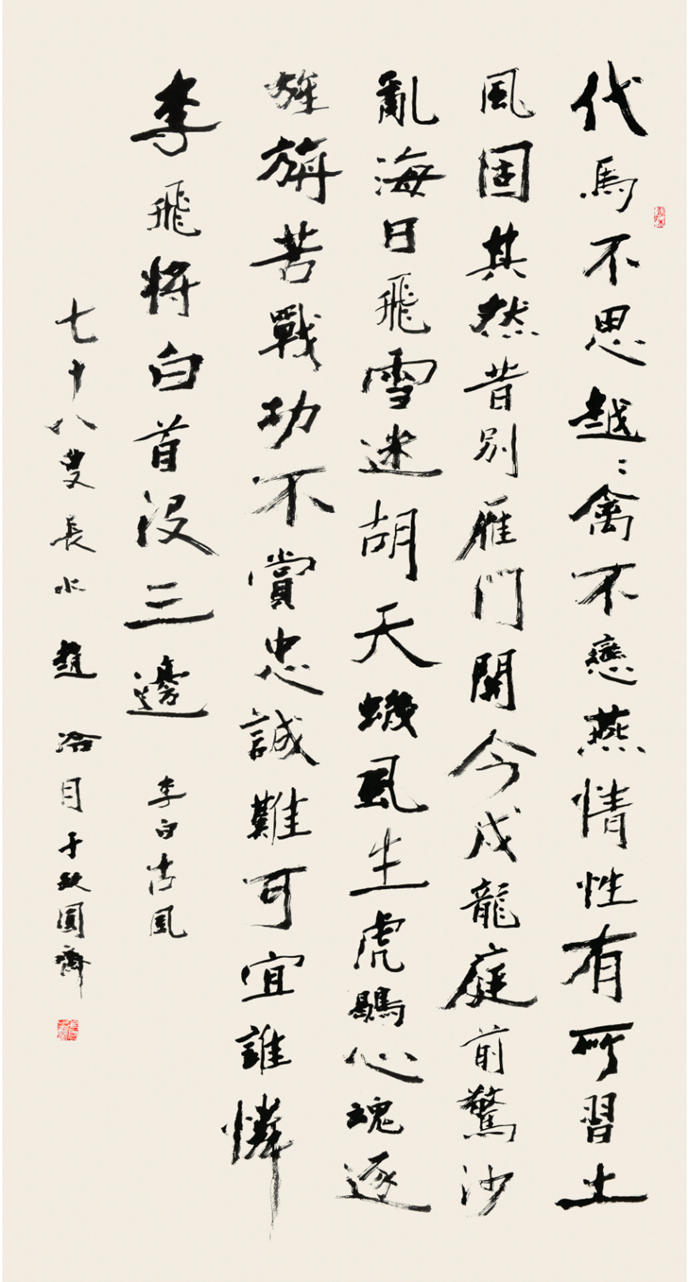 代馬不思越〻禽不戀燕情性有所習土
風固其然昔別雁門關今戍龍庭前驚沙
亂海日飛雪迷胡天蟣虱生虎鶡心魂逐
旌旃苦戰功不賞忠誠難可宜誰憐
李飛將白首沒三邊 李白古風
七十八叟長水趙冷月于缺圓齋